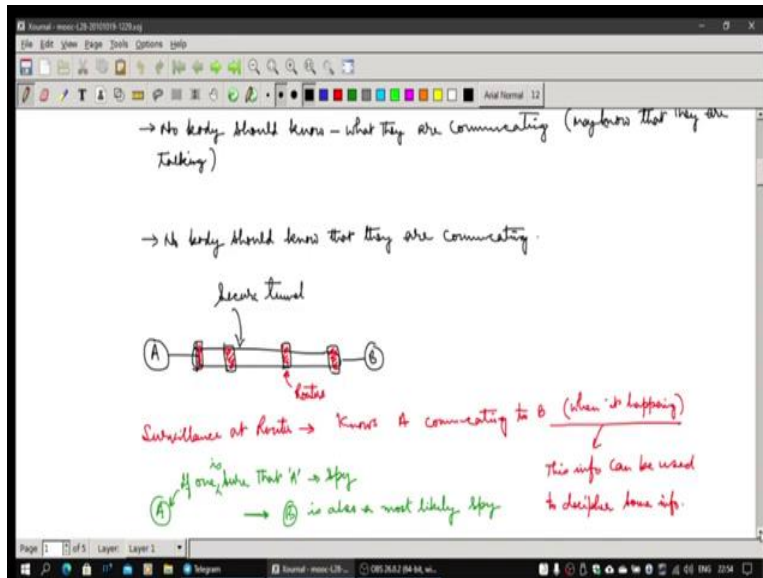 Xournal - mooc-L28-20101019-1229.xoj
File Edit View Page Tools Options Help
Arial Normal 12
→ No body should know - what they are commucating (may know that they are
talking)
→ No body should know that they are commucating.
Secure tunnel
A B
Routers
Survillance at Router → Knows A commucating to B (when it happing)
This info can be used
to decipher some info.
If one is sure that 'A' → spy
A
→ B is also a most likely spy
Page 1 of 5 Layer: Layer 1
Telegram Xournal - mooc-L28-... OBS 26.0.2 (64-bit, wi... ENG 22:54